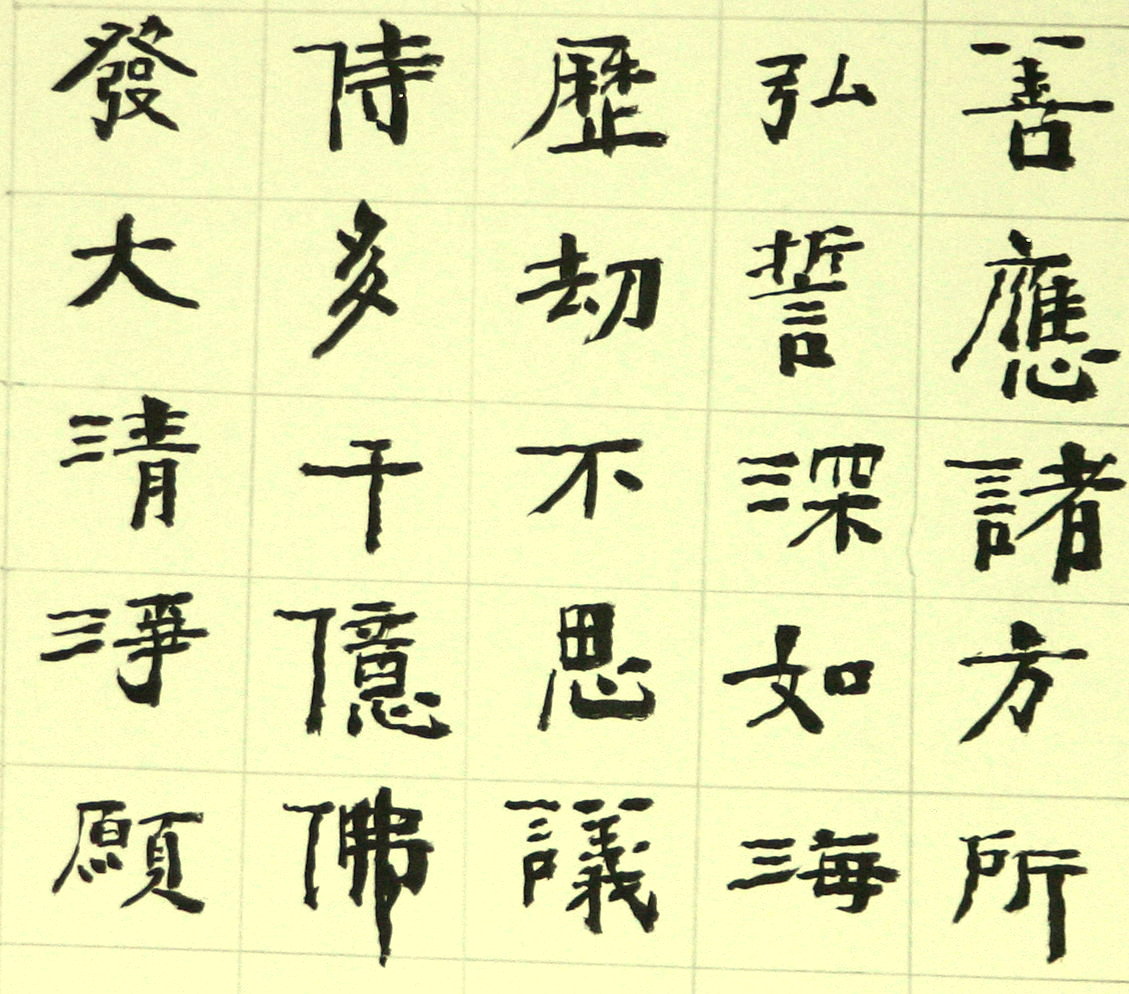 善應諸方所
弘誓深如海
歷劫不思議
侍多千億佛
發大清淨願